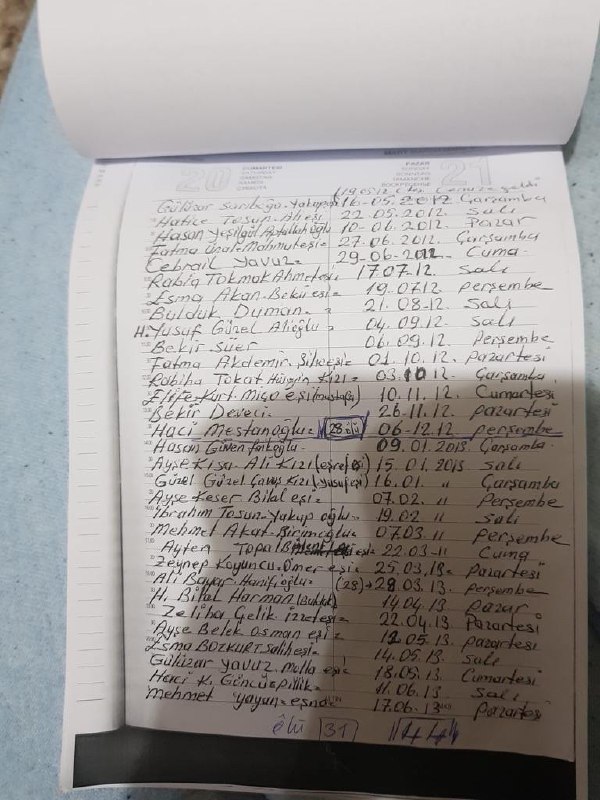 20 CUMARTESİ PAZAR 21
SATURDAY SUNDAY
Gülizar 16-05-2012 Çarşamba
Hatice Tosun Ali eşi 22.05.2012. Salı
Hasan Yeşilgül 10-06.2012. Pazar
Fatma Ünal-Mahmut eşi= 27-06.2012. Çarşamba
Cebrail Yavuz= 29-06-2012 Cuma
Rabia Tokmak Ahmet eşi 17.07.12. Salı
Esma Akan. Bekir eşi= 19.0712. Perşembe
Bulduk Duman. = 21.08-12. Salı
H. Yusuf Güzel Alioğlu= 04.09.12. Salı
Bekir Süer 06.09.12. Perşembe
Fatma Akdemir. 01.10.12. Pazartesi
Rabiha Tokat Hüseyin Kızı= 03.10.12. Çarşamba
Elife Kurt. Miço eşi 10.11.12. Cumartesi
Bekir Deveci= 26-11.12. Pazartesi
Haci Mestanoğlu= 28.ölü 06-12.12 Perşembe
Hasan Güven 09.01.2013. Çarşamba
Ayşe Kısa. Ali Kızı 15.01.2013 Salı
Güzel Güzel Çavuş Kızı 16.01. " Çarşamba
Ayşe Keser Bilal eşi= 07.02. " Perşembe
İbrahim Tosun-Yakup oğlu= 19.02 " Salı
Mehmet Akat. 07.03 " Perşembe
Ayten Topal 22.03-11 Cuma
Zeynep Koyuncu Ömer eşi= 25.03.13= Pazartesi
Ali Bayar. Hanifioğlu= (28)→28.03.13. Perşembe
H. Bilal Harman 14.04.13. Pazar
Zeliha Çelik. İzzet eşi= 22.04.13. Pazartesi
Ayşe Belek Osman eşi= 12.05.13. Pazartesi
Esma BOZKURT. Salih eşi= 14.05.13. Salı
Gülüzar Yavuz. Molla eşi= 18.05.13. Cumartesi
Haci K. 11.06.13. Salı
Mehmet 17.06.13 Pazartesi
ölü 31